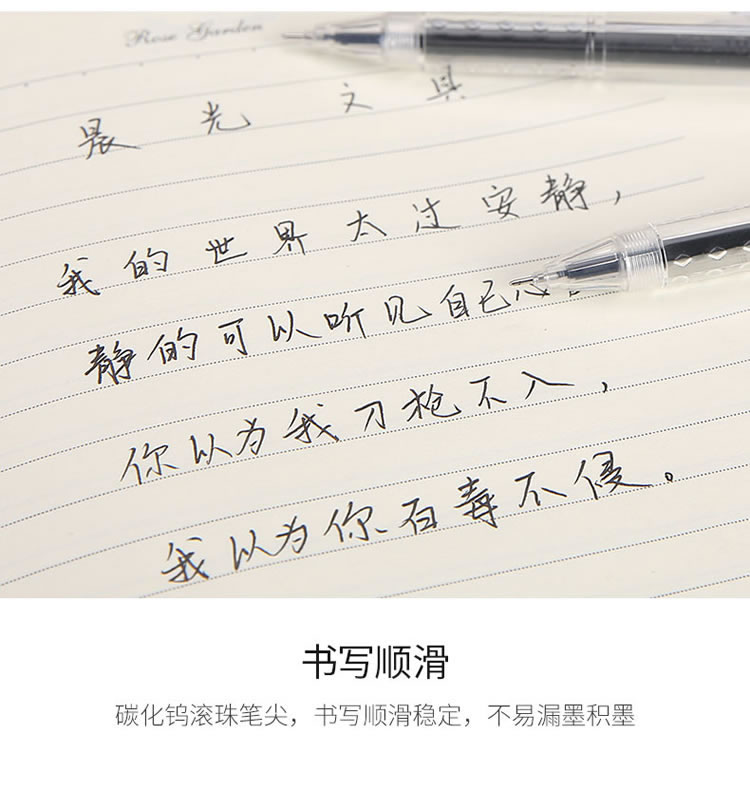 Rose Garden
晨光文具
我的世界太过安静，
静的可以听见自己心
你以为我刀枪不入，
我以为你百毒不侵。
书写顺滑
碳化钨滚珠笔尖，书写顺滑稳定，不易漏墨积墨